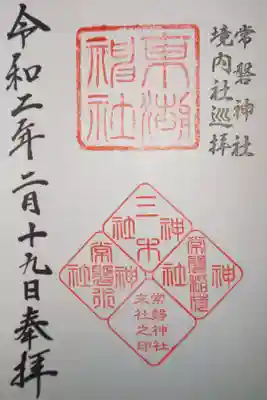 常磐神社
境内社巡拝
東湖
神社
三木神社
常磐稲荷神社
常磐神社
末社之印
令和二年二月十九日奉拝